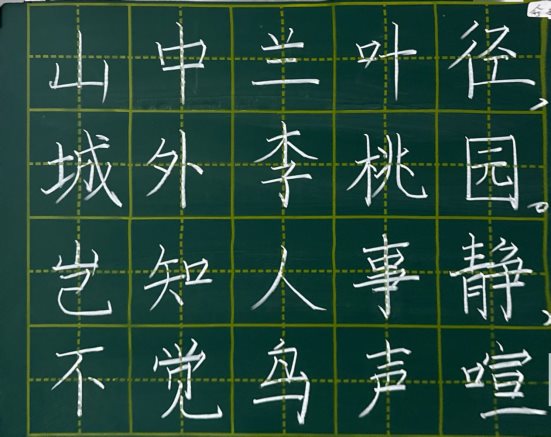 山中兰叶径，
城外李桃园。
岂知人事静，
不觉鸟声喧